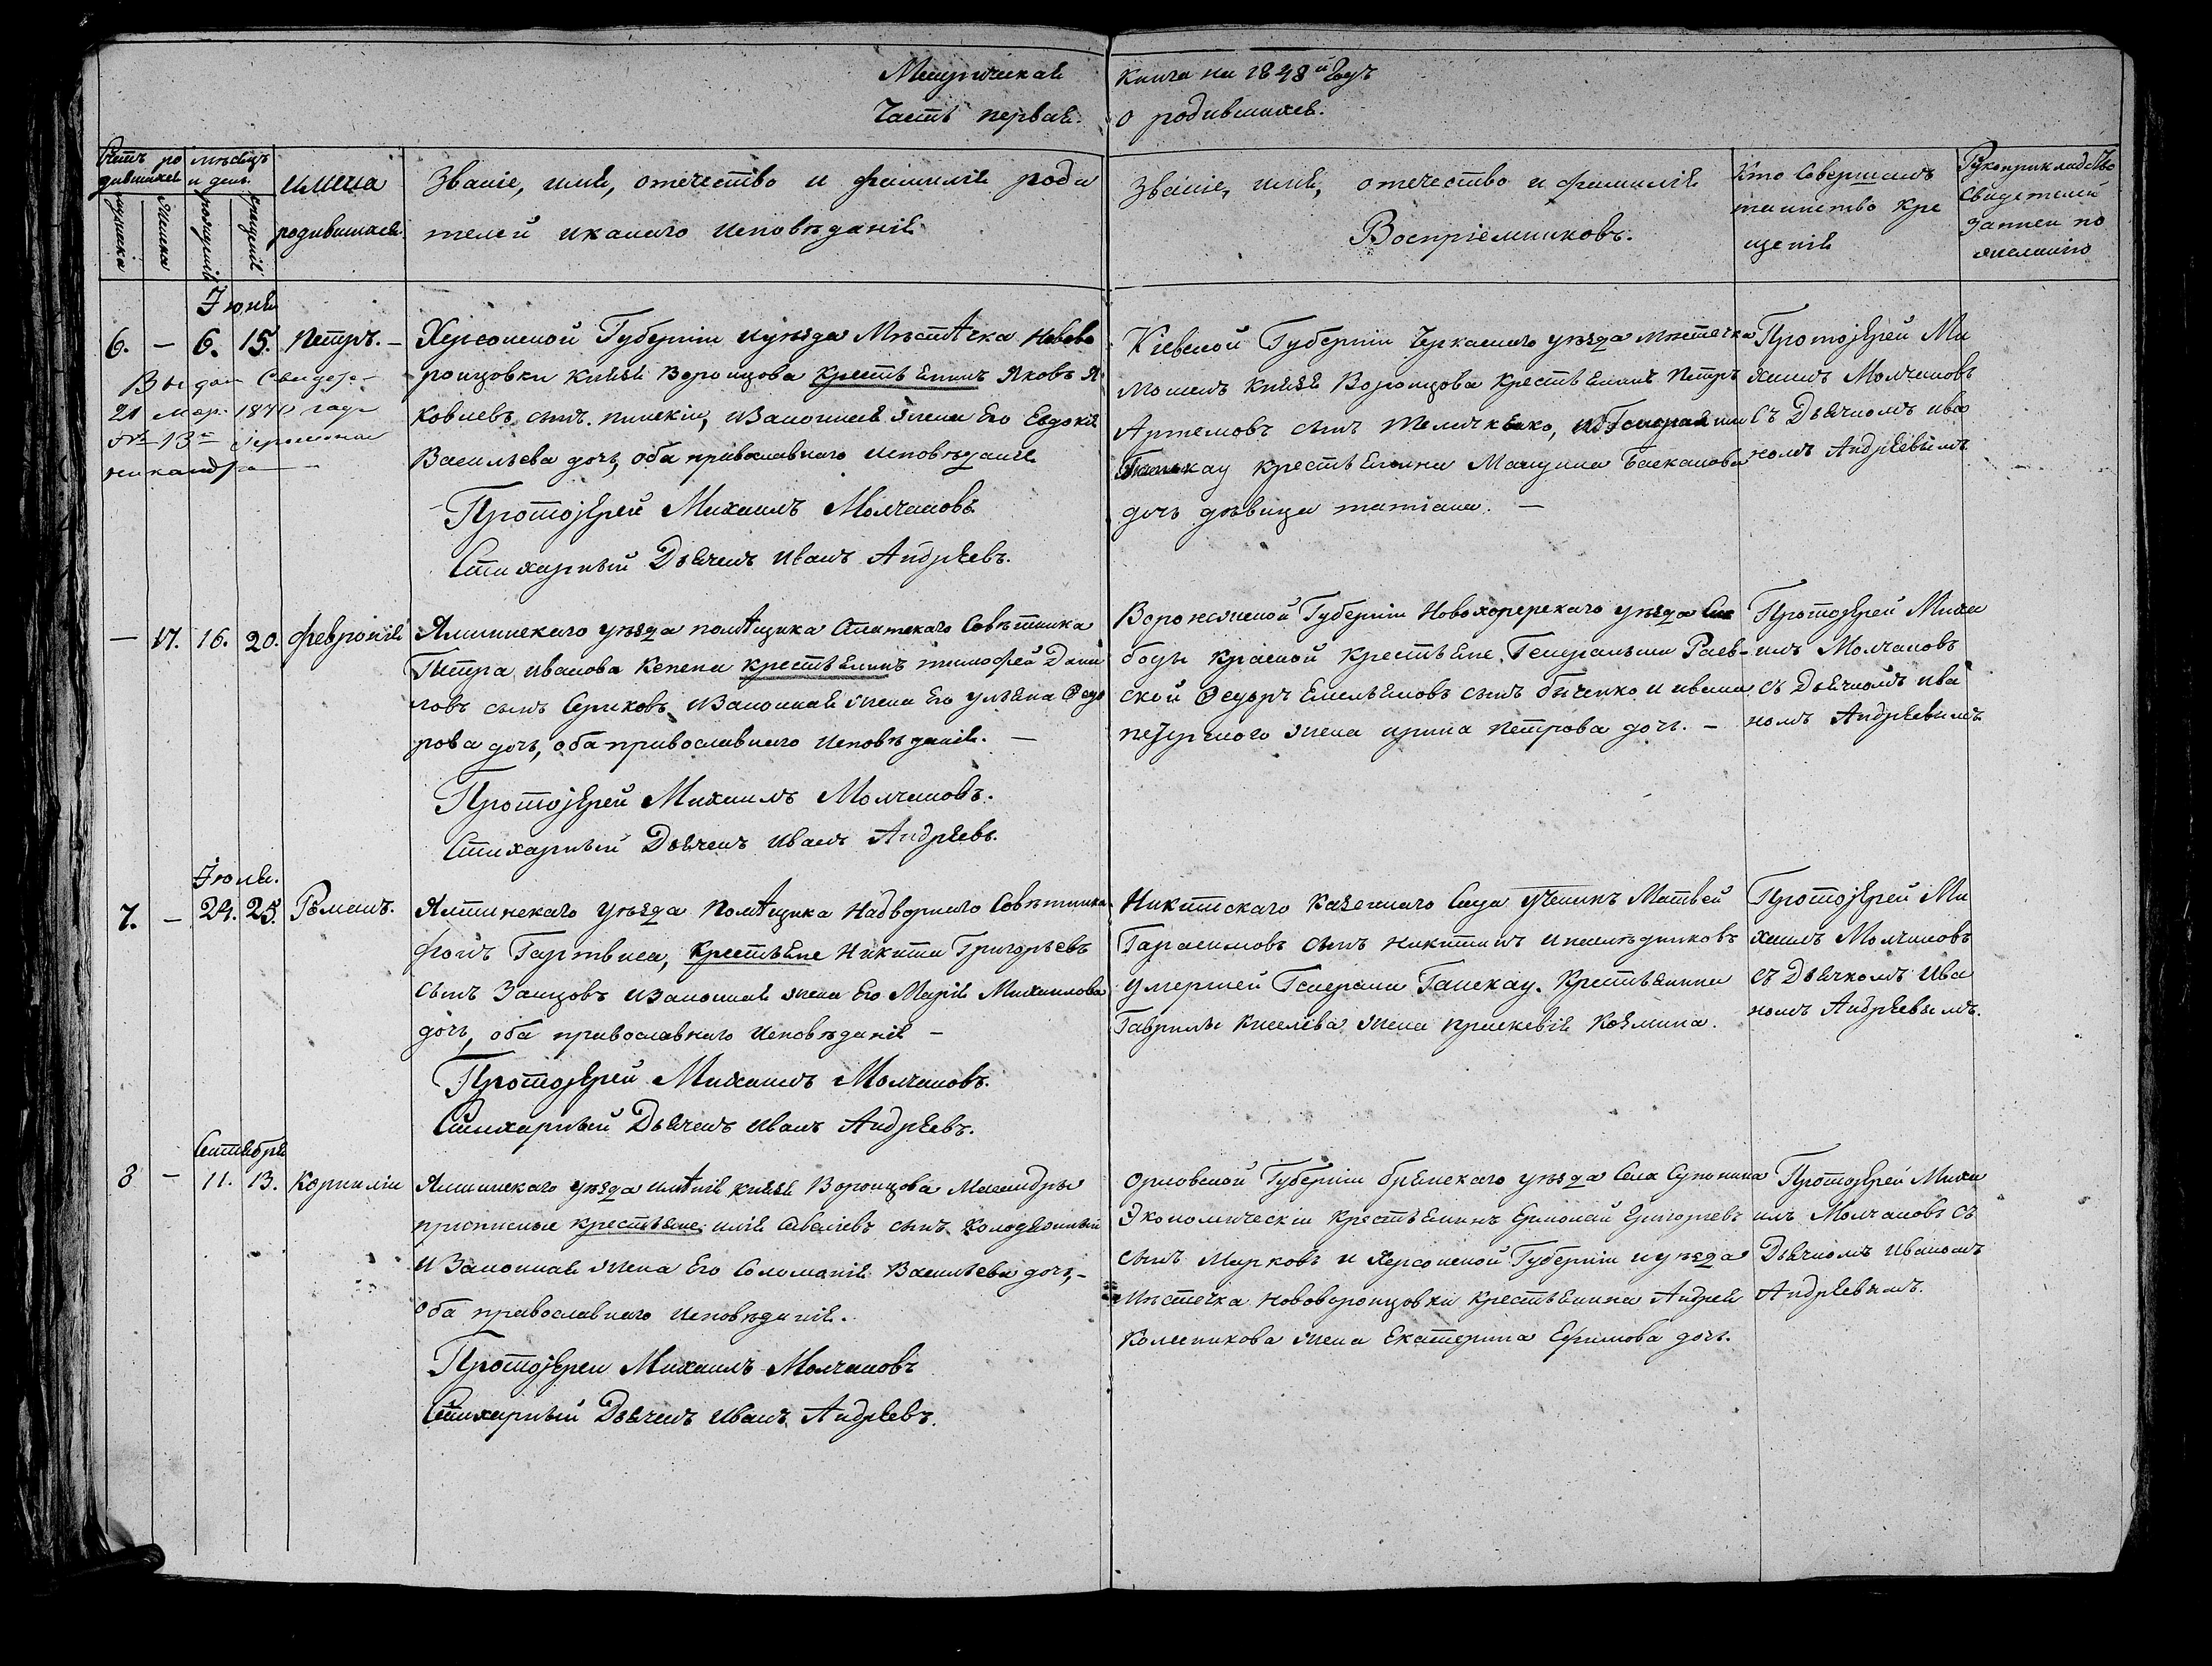 Метрическая книга на 1848й годъ
Часть первая. о родившихся.
Счетъ ро
дившихся
мѣсяцъ
и день.
мужеска
женска
рожденія
крещенія
имена
родившихся.
Званіе, имя, отечество и фамилія роди
телей и какого исповѣданія
Званіе, имя, отечество и фамилія
Воспріемниковъ.
Кто Совершалъ
таинство кре
щенія
Рукоприкладство
Свидетелей
записи по
желанію
Іюня
6. — 6. 15. Петръ. —
Выдан Свидет.
21 мар. 1870 года
№ 13
Херсонской Губерніи и уѣзда Мѣстѣчка Ново во
ронцовки Князя Воронцова крестьянинъ Яковъ Я
ковлевъ сынъ, и законная жена Его Евдокія
Васильева дочь, оба православнаго исповѣданія
Протоіерей Михаилъ Молчановъ
Стихарный Дьячекъ Иванъ Андрѣевъ.
Кіевской Губерніи Черкаскаго уѣзда мѣстечка
Мошенъ Князя Воронцова крестьянинъ Петръ
Артемовъ сынъ, и Генеральши
крестьянина Баскакова
дочь дѣвица татіана. —
Протоіерей Ми
хаилъ Молчановъ
Съ Дьячкомъ Ива
номъ Андрѣевымъ
— 17. 16. 20. февронія
Ялтинскаго уѣзда помѣщика Статскаго Совѣтника
Петра Иванова Кепена крестьянинъ тимофей Дани
ловъ сынъ Сериковъ и законная жена Его Ульяна Федо
рова дочь, оба православнаго исповѣданія. —
Протоіерей Михаилъ Молчановъ.
Стихарный Дьячекъ Иванъ Андрѣевъ.
Воронежской Губерніи Новохоперскаго уѣзда Сло
боды красной крестьяне Генеральши Раев-
ской Федоръ Емельяновъ сынъ быченко и ивана
жена ирина Петрова дочь. —
Протоіерей Миха
илъ Молчановъ
съ Дьячкомъ ива
номъ Андрѣевымъ
Іюля.
7. — 24. 25. Романъ.
Ялтинскаго уѣзда Помѣщика Надворнаго Совѣтника
фонъ Гартвиса, крестьяне Никита Григорьевъ
сынъ Заицовъ и законная жена Его Марія Михаилова
дочь, оба православнаго исповѣданія —
Протоіерей Михаилъ Молчановъ.
Стихарный Дьячекъ Иванъ Андрѣевъ.
Никитскаго казеннаго Сада ученикъ Матвей
Гарасимовъ сынъ никитинъ и наслѣдниковъ
умершей Генерали крестьянина
Гаврилы Киселева жена праскевія Козмина.
Протоіерей Ми
хаилъ Молчановъ
съ Дьячкомъ Ива
номъ Андрѣевымъ.
Сентября
8 — 11. 13. Корнилій
Ялтинскаго уѣзда имѣнія князя Воронцова Масандры
приписные крестьяне, илія Савеліевъ сынъ Колодяжный
и Законная жена Его Соломанія Васильева дочь, —
Оба православнаго исповѣданія.
Протоіереи Михаилъ Молчановъ
Стихарный Дьячекъ Иванъ Андрѣевъ.
Орловской Губерніи брянскаго уѣзда Села Супонина
Экономическіи крестьянинъ Ермолай Григорьевъ
сынъ Марковъ и Херсонской Губерніи и уѣзда
Мѣстечка Нововоронцовки крестьянина Андрея
Колесникова жена Екатерина Ефимова дочь.
Протоіерей Миха
илъ Молчановъ съ
Дьячкомъ Иваномъ
Андрѣевымъ.